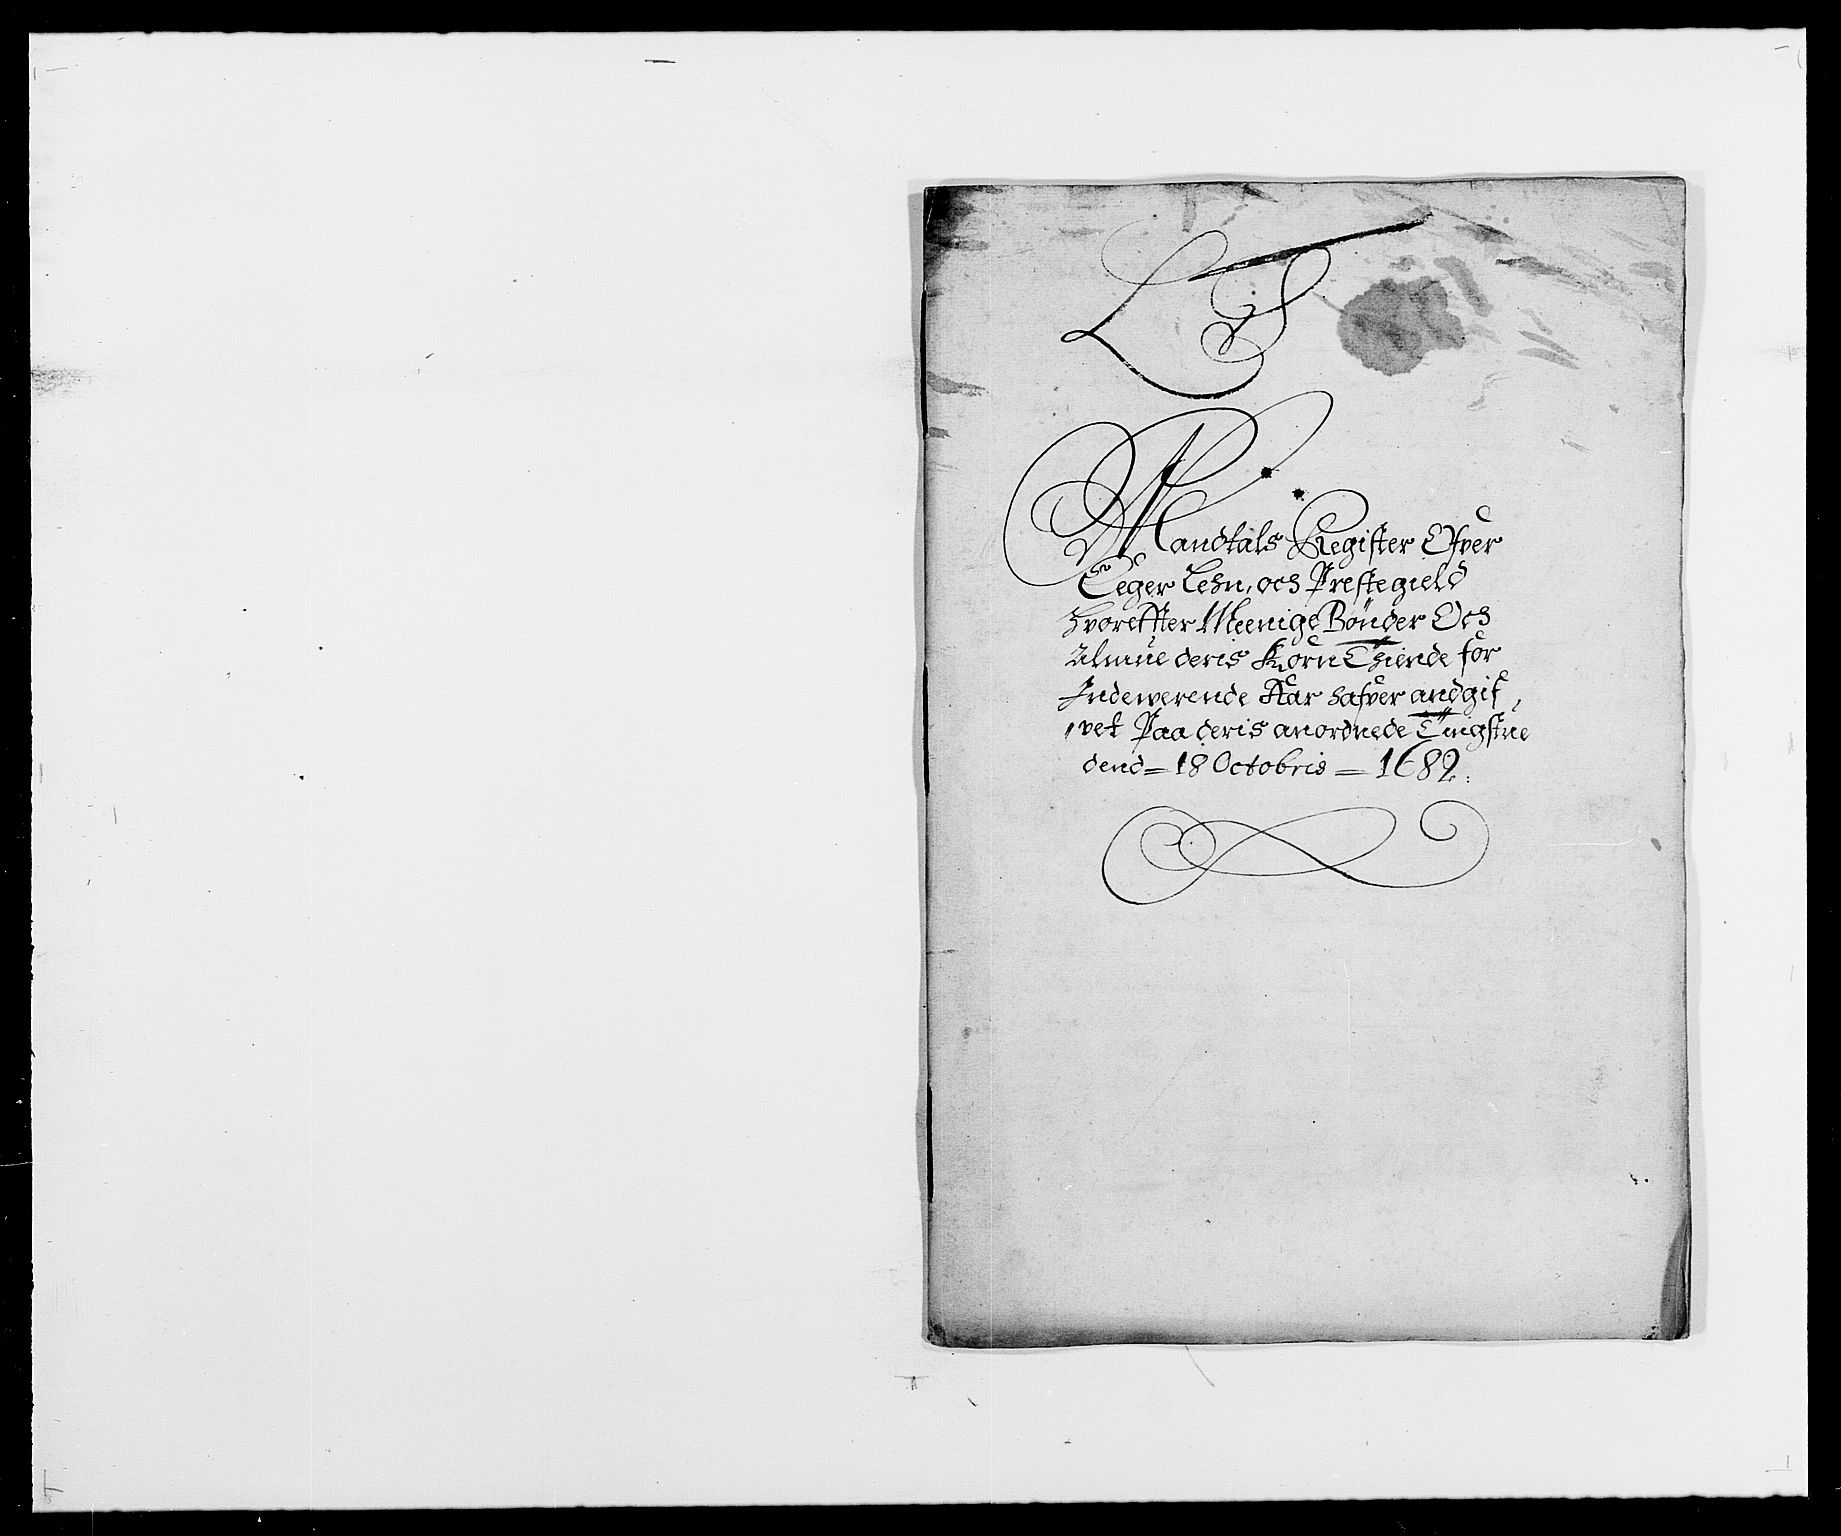 L S
Mandtals Register Ofver
Eeger Lehn, och Prestegield
Hvoreffter Meenige Bönder Och
Almue deris Korn Thiende for
Indewerende Aar hafver andgif,
,,vet Paa deris anordnede Tingstue
dend = 18 Octobris = 1682.